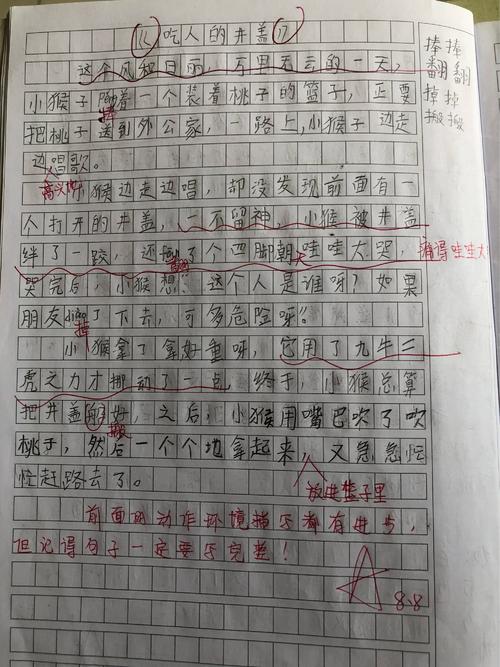 吃人的井盖
这个风和日丽，万里无云的一天，
小猴子着一个装着桃子的篮子，正要
把桃子送到外公家，一路上，小猴子边走
边唱歌。
小猴边走边唱，却没发现前面有一
个打开的井盖，一不留神，小猴被井盖
绊了一跤，还了个四脚朝天哇哇大哭，
哭完后，小猴想：这个人是谁呀？如果
朋友diào了下去，可多危险呀！"
小猴拿了拿好重呀，它用了九牛二
虎之力才挪动了一点，终于，小猴总算
把井盖好，之后，小猴用嘴巴吹了吹
桃子，然后一个个地拿起来，又急急忙
忙赶路去了。
捧捧
翻翻
掉掉
搬搬
掉
搬
放进篮子里
前面的动作环境描写都有进步，
但记得句子一定要写完整！
8.8